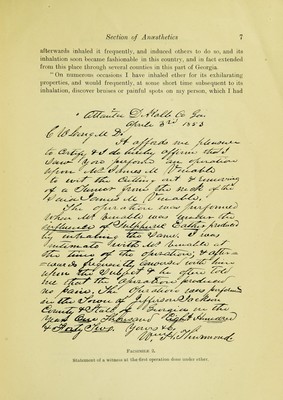 Section of Anæsthetics 7
afterwards inhaled it frequently, and induced others to do so, and its
inhalation soon became fashionable in this country, and in fact extended
from this place through several counties in this part of Georgia.
"On numerous occasions I have inhaled ether for its exhilarating
properties, and would frequently, at some short time subsequent to its
inhalation, discover bruises or painful spots on my person, which I had
Atlanta DeKalb Co Geo
April 3rd 1853
C W Long M D
It affords me pleasure
to certify & I do hereby affirm that I
saw you perform an operation
upon Mr James M Venable
to wit the cutting out & removing
of a Tumor from the neck of the
said James M Venable,
The operation was performed
when Mr Venable was under the
influence of Sulphuric Ether, produced
by inhaling the same. I was
intimate with Mr Venable at
the time of the operation, & after-
wards frequently conversed with him
upon the Subject & he often told
me that the operation produced
no pain. The Operation was performed
in the Town of Jefferson Jackson
County & State of Georgia in the
year One Thousand Eight Hundred
& Forty Two. Yours &c,
Thurmond
FACSIMILE 2.
Statement of a witness at the first operation done under ether.